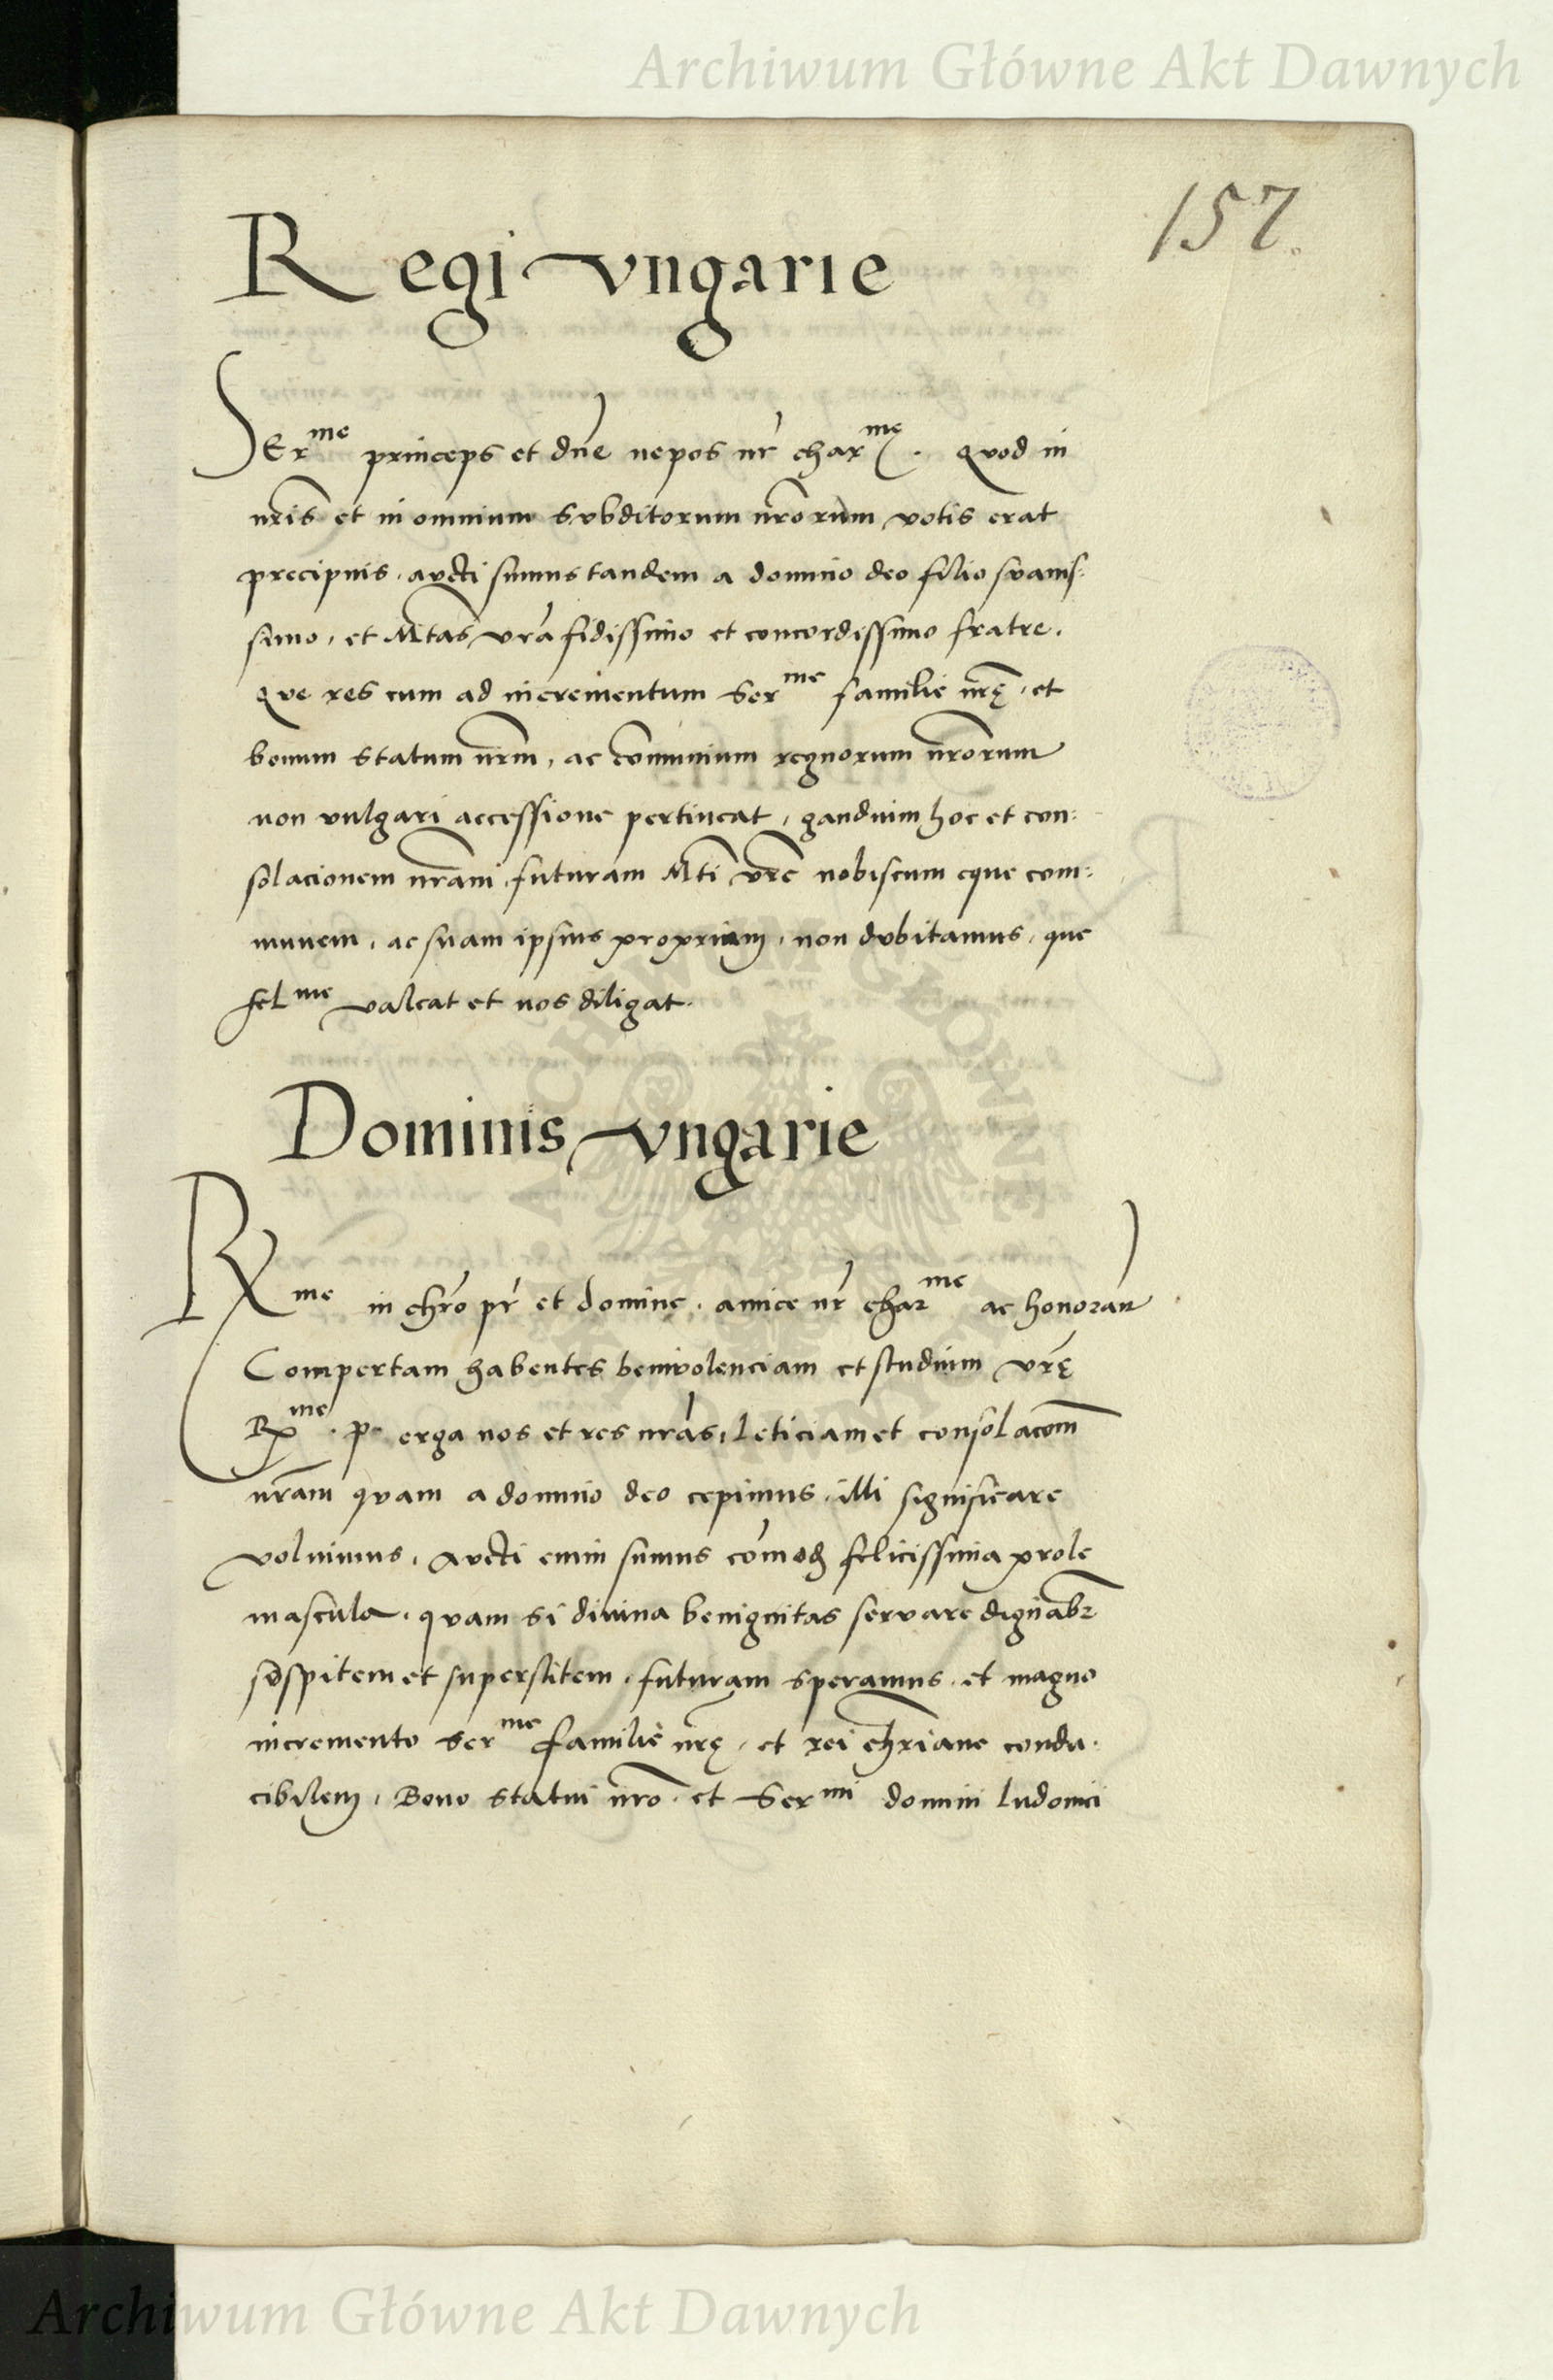 Archiwum Główne Akt Dawnych
157.
Regi vngarie
SEr^me princeps et dn̄e nepos nr̄ char^me. Quod in
nr̄is et in omnium svbditorum nr̄orum votis erat
precipuis, avcti sumus tandem a domino deo filio svavis-
simo, et Mtas vr̄a fidissimo et concordissimo fratre.
Qve res cum ad incrementum Ser^me familie nr̄ę, et
bonum statum nr̄m, ac com̄unium regnorum nr̄orum
non vulgari accessione pertineat, gaudium hoc et con:
solacionem nr̄am, futuram Mti vr̄e nobiscum eque com:
munem, ac suam ipsius propriam, non dvbitamus, que
fel^me valeat et nos diligat.
Dominis vngarie
R^me in chr̄o pr̄ et domine, amice nr̄ char^me ac honoran̄
Compertam habentes benivolenciam et studium vr̄ę
R^me. p. erga nos et res nr̄as, leticiam et consolacom̄
nr̄am qvam a domino deo cepimus, illi significare
voluimus, Avcti enim sumus felicissima prole
mascula, qvam si divina benignitas servare dignabr̄
sospitem et superstitem, futuram speramus, et magno
incremento Ser^me familie nr̄ę, et rei chr̄iane condu-
cibilem, Bono statui nr̄o, et Ser^mi domini ludovici
ARCHIWUM GŁÓWNE AKT DAWNYCH
Archiwum Główne Akt Dawnych